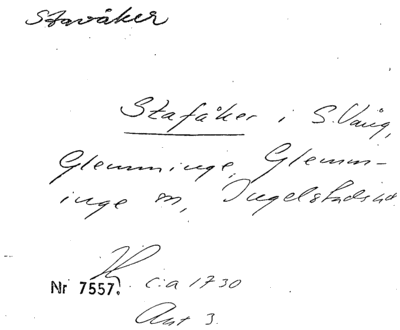 Stavåker
Stafåker i S. Vång,
Glemminge, Glemm-
inge sn, Ingelstads hd.
Nr 7557. c:a 1730
Ant 3.